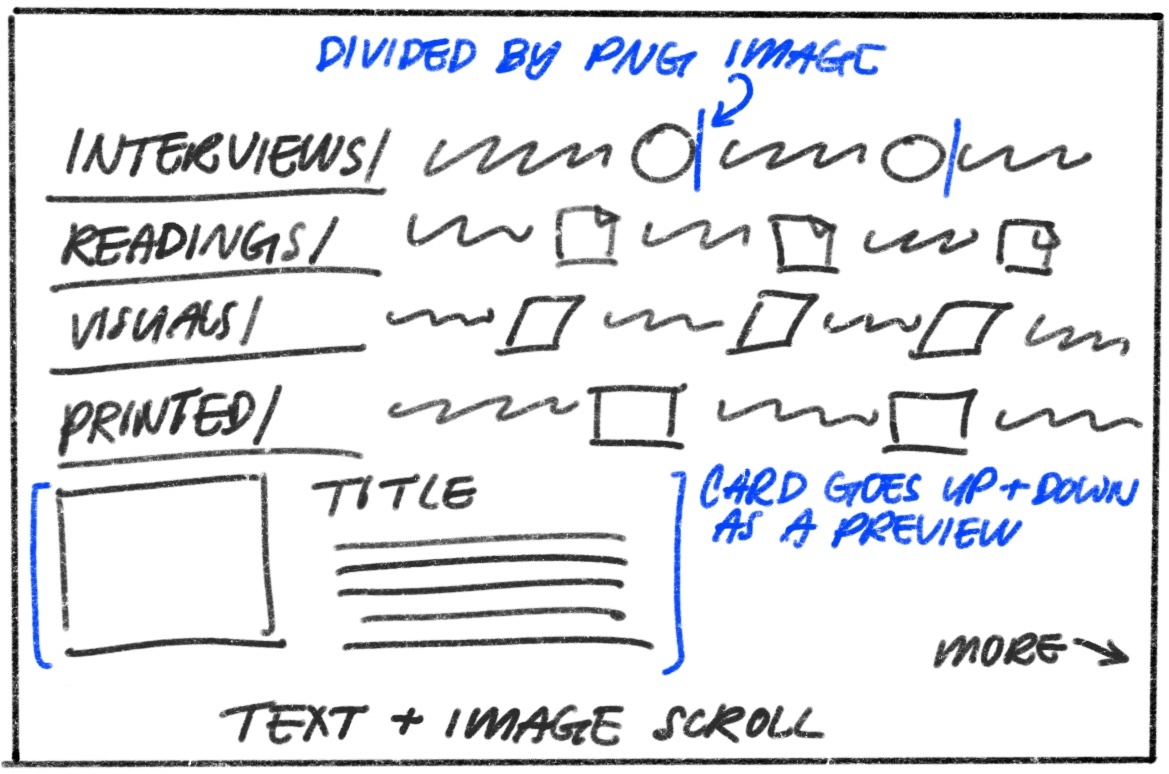 DIVIDED BY PNG IMAGE
INTERVIEWS/
READINGS/
VISUALS/
PRINTED/
TITLE
CARD GOES UP + DOWN
AS A PREVIEW
MORE →
TEXT + IMAGE SCROLL